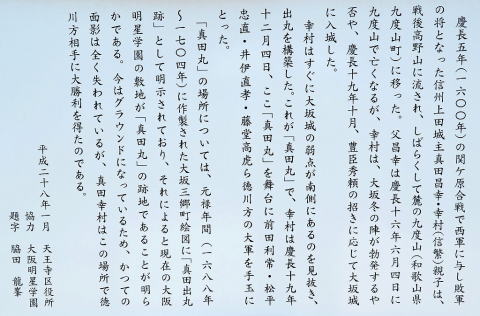 慶長五年(一六〇〇年)の関ケ原合戦で西軍に与し敗軍
の将となった信州上田城主真田昌幸・幸村(信繁)親子は、
戦後高野山に流され、しばらくして麓の九度山(和歌山県
九度山町)に移った。父昌幸は慶長十六年六月四日に
九度山で亡くなるが、幸村は、大坂冬の陣が勃発するや
否や、慶長十九年十月、豊臣秀頼の招きに応じて大坂城
に入城した。
幸村はすぐに大坂城の弱点が南側にあるのを見抜き、
出丸を構築した。これが「真田丸」で、幸村は慶長十九年
十二月四日、ここ「真田丸」を舞台に前田利常・松平
忠直・井伊直孝・藤堂高虎ら徳川方の大軍を手玉に
とった。
「真田丸」の場所については、元禄年間(一六八八年
〜一七〇四年)に作製された大坂三郷町絵図に「真田出丸
跡」として明示されており、それによると現在の大阪
明星学園の敷地が「真田丸」の跡地であることが明ら
かである。今はグラウンドになっているため、かつての
面影は全く失われているが、真田幸村はこの場所で徳
川方相手に大勝利を得たのである。
平成二十八年一月 天王寺区役所
協力 大阪明星学園
題字 脇田 龍峯